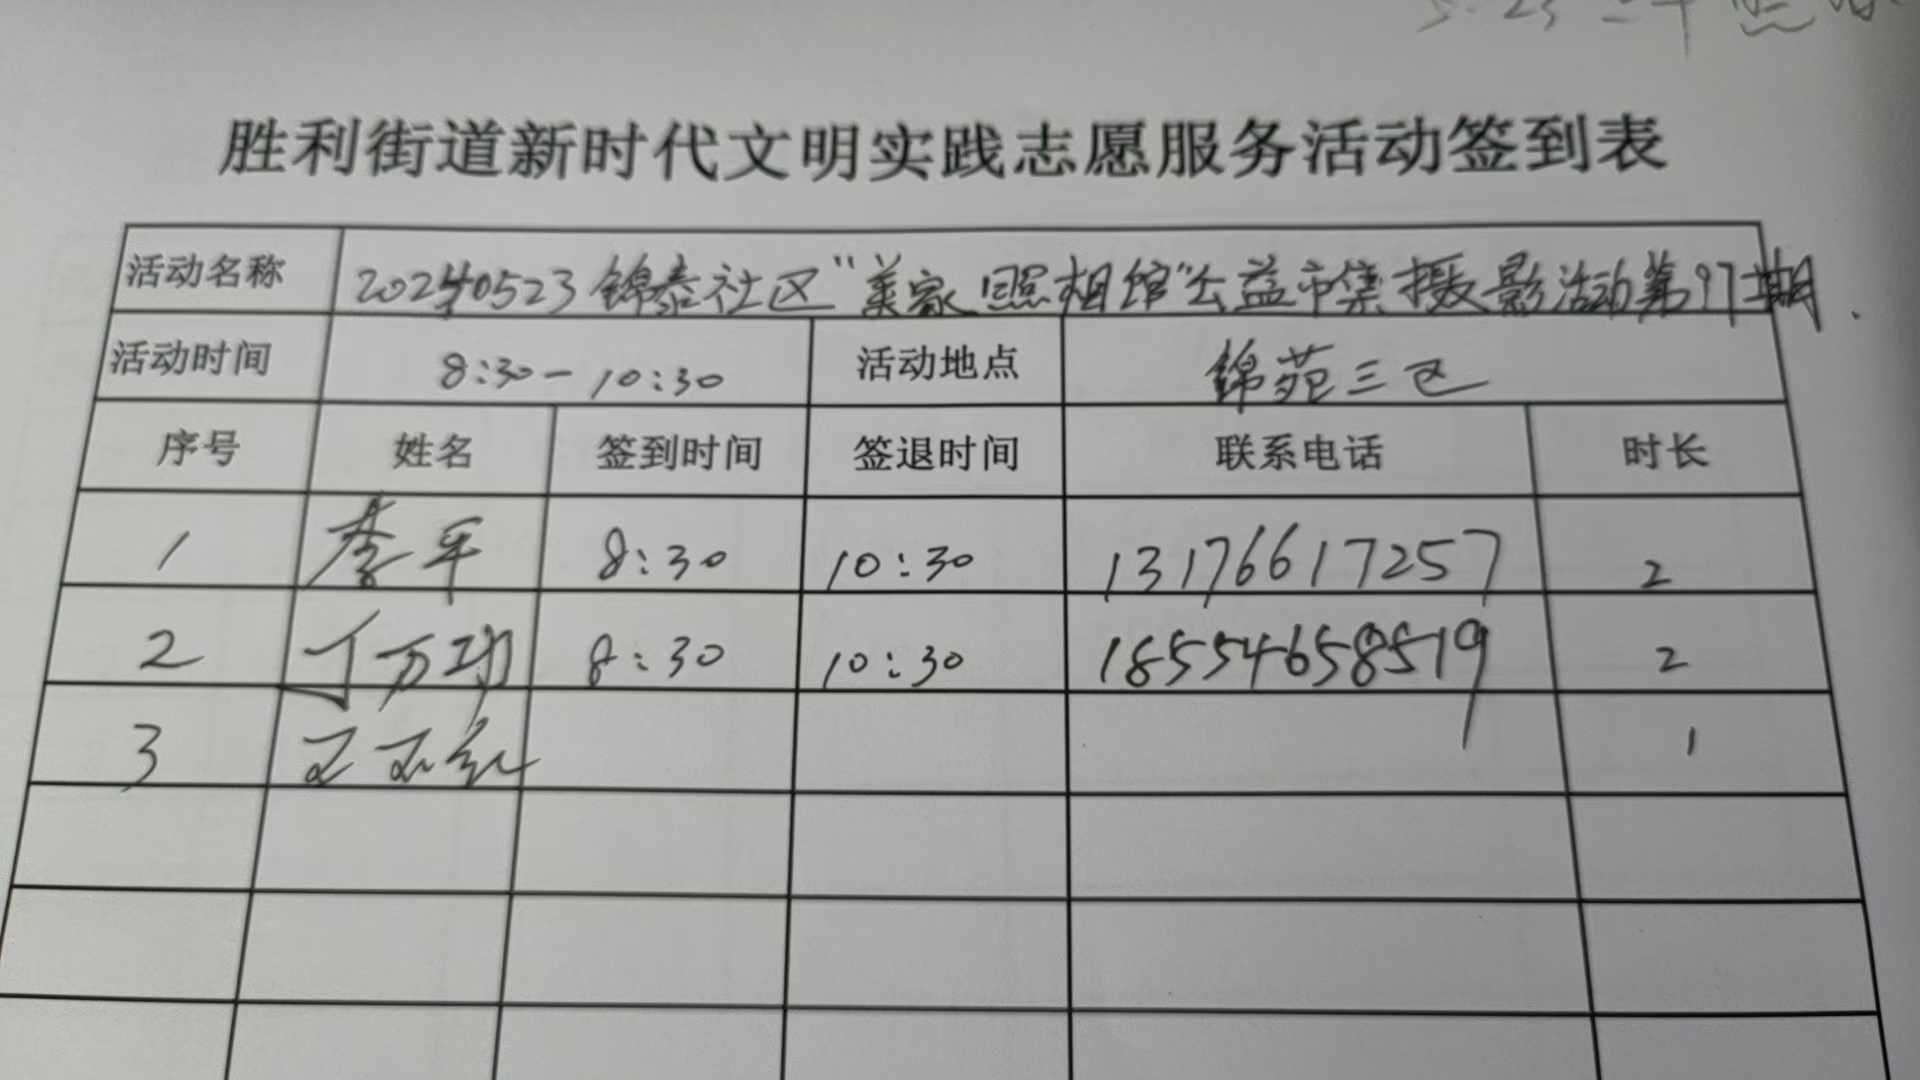 5.23 三
胜利街道新时代文明实践志愿服务活动签到表
活动名称 20240523锦泰社区“美家照相馆”公益市集摄影活动第97期.
活动时间 8:30-10:30 活动地点 锦苑三区
序号 姓名 签到时间 签退时间 联系电话 时长
1 李平 8:30 10:30 13176617257 2
2 丁万功 8:30 10:30 18554658519 2
3 王玉红 1